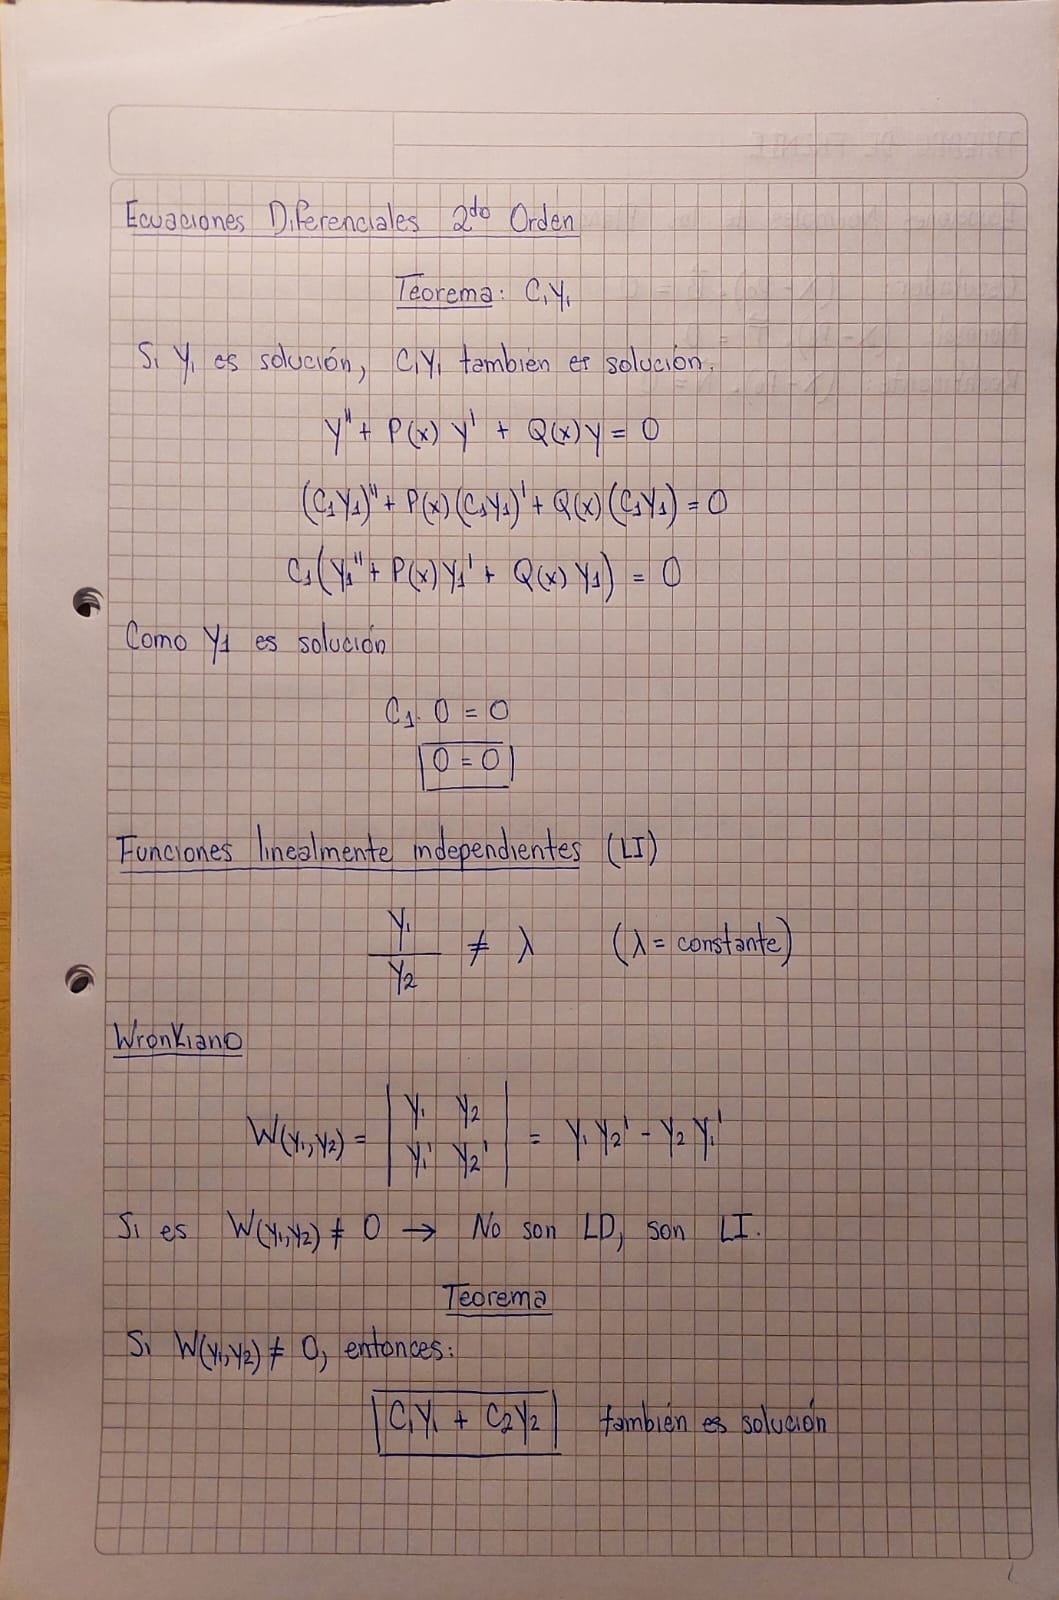 Ecuaciones Diferenciales 2do Orden
Teorema: C₁Y₁
Si Y₁ es solución, C₁Y₁ también es solución.
Y'' + P(x) Y' + Q(x) Y = 0
(C₁Y₁)'' + P(x)(C₁Y₁)' + Q(x)(C₁Y₁) = 0
C₁(Y₁'' + P(x) Y₁' + Q(x) Y₁) = 0
Como Y₁ es solución
C₁. 0 = 0
0 = 0
Funciones linealmente independientes (LI)
Y₁/Y₂ ≠ λ (λ = constante)
Wronkiano
W(Y₁,Y₂) = | Y₁ Y₂ ; Y₁' Y₂' | = Y₁ Y₂' - Y₂ Y₁'
Si es W(Y₁,Y₂) ≠ 0 → No son LD, son LI.
Teorema
Si W(Y₁,Y₂) ≠ 0, entonces:
C₁Y₁ + C₂Y₂ también es solución